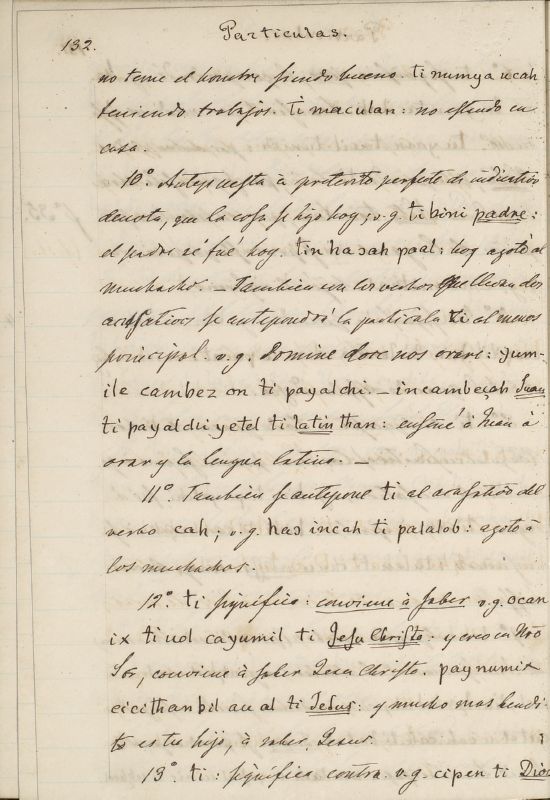 132.
Particulas.
no teme el hombre siendo bueno. ti numya ucah
teniendo trabajos. ti maculan: no estando en
casa.
10º. Antepuesta à preterito perfecto de indicativo
denota, que la cosa se hizo hoy; v.g. ti bini padre:
el padre se fué hoy. tin hasah paal: hoy azoté al
muchacho. – Tambien con los verbos que llevan dos
acusativos se antepondrá la particula ti al menos
principal. v.g. Domine doce nos orare: yum-
ile cambez on ti payalchi. – in cambeçah Juan
ti payalchi yetel ti latin than: enseñé à Juan à
orar y la lengua latina. –
11º. Tambien se antepone ti al acusativo del
verbo cah; v.g. has incah ti palalob: azoto à
los muchachos.
12º. ti significa: conviene à saber v.g. ocan
ix ti uol cayumil ti Jesu Christo: y creo en Nro
Sor, conviene à saber Jesu Christo. paynumix
cicithanbil au al ti Jesus: y mucho mas bendi-
to es tu hijo, à saber Jesus.
13º. ti: significa contra v.g. cipen ti Dios